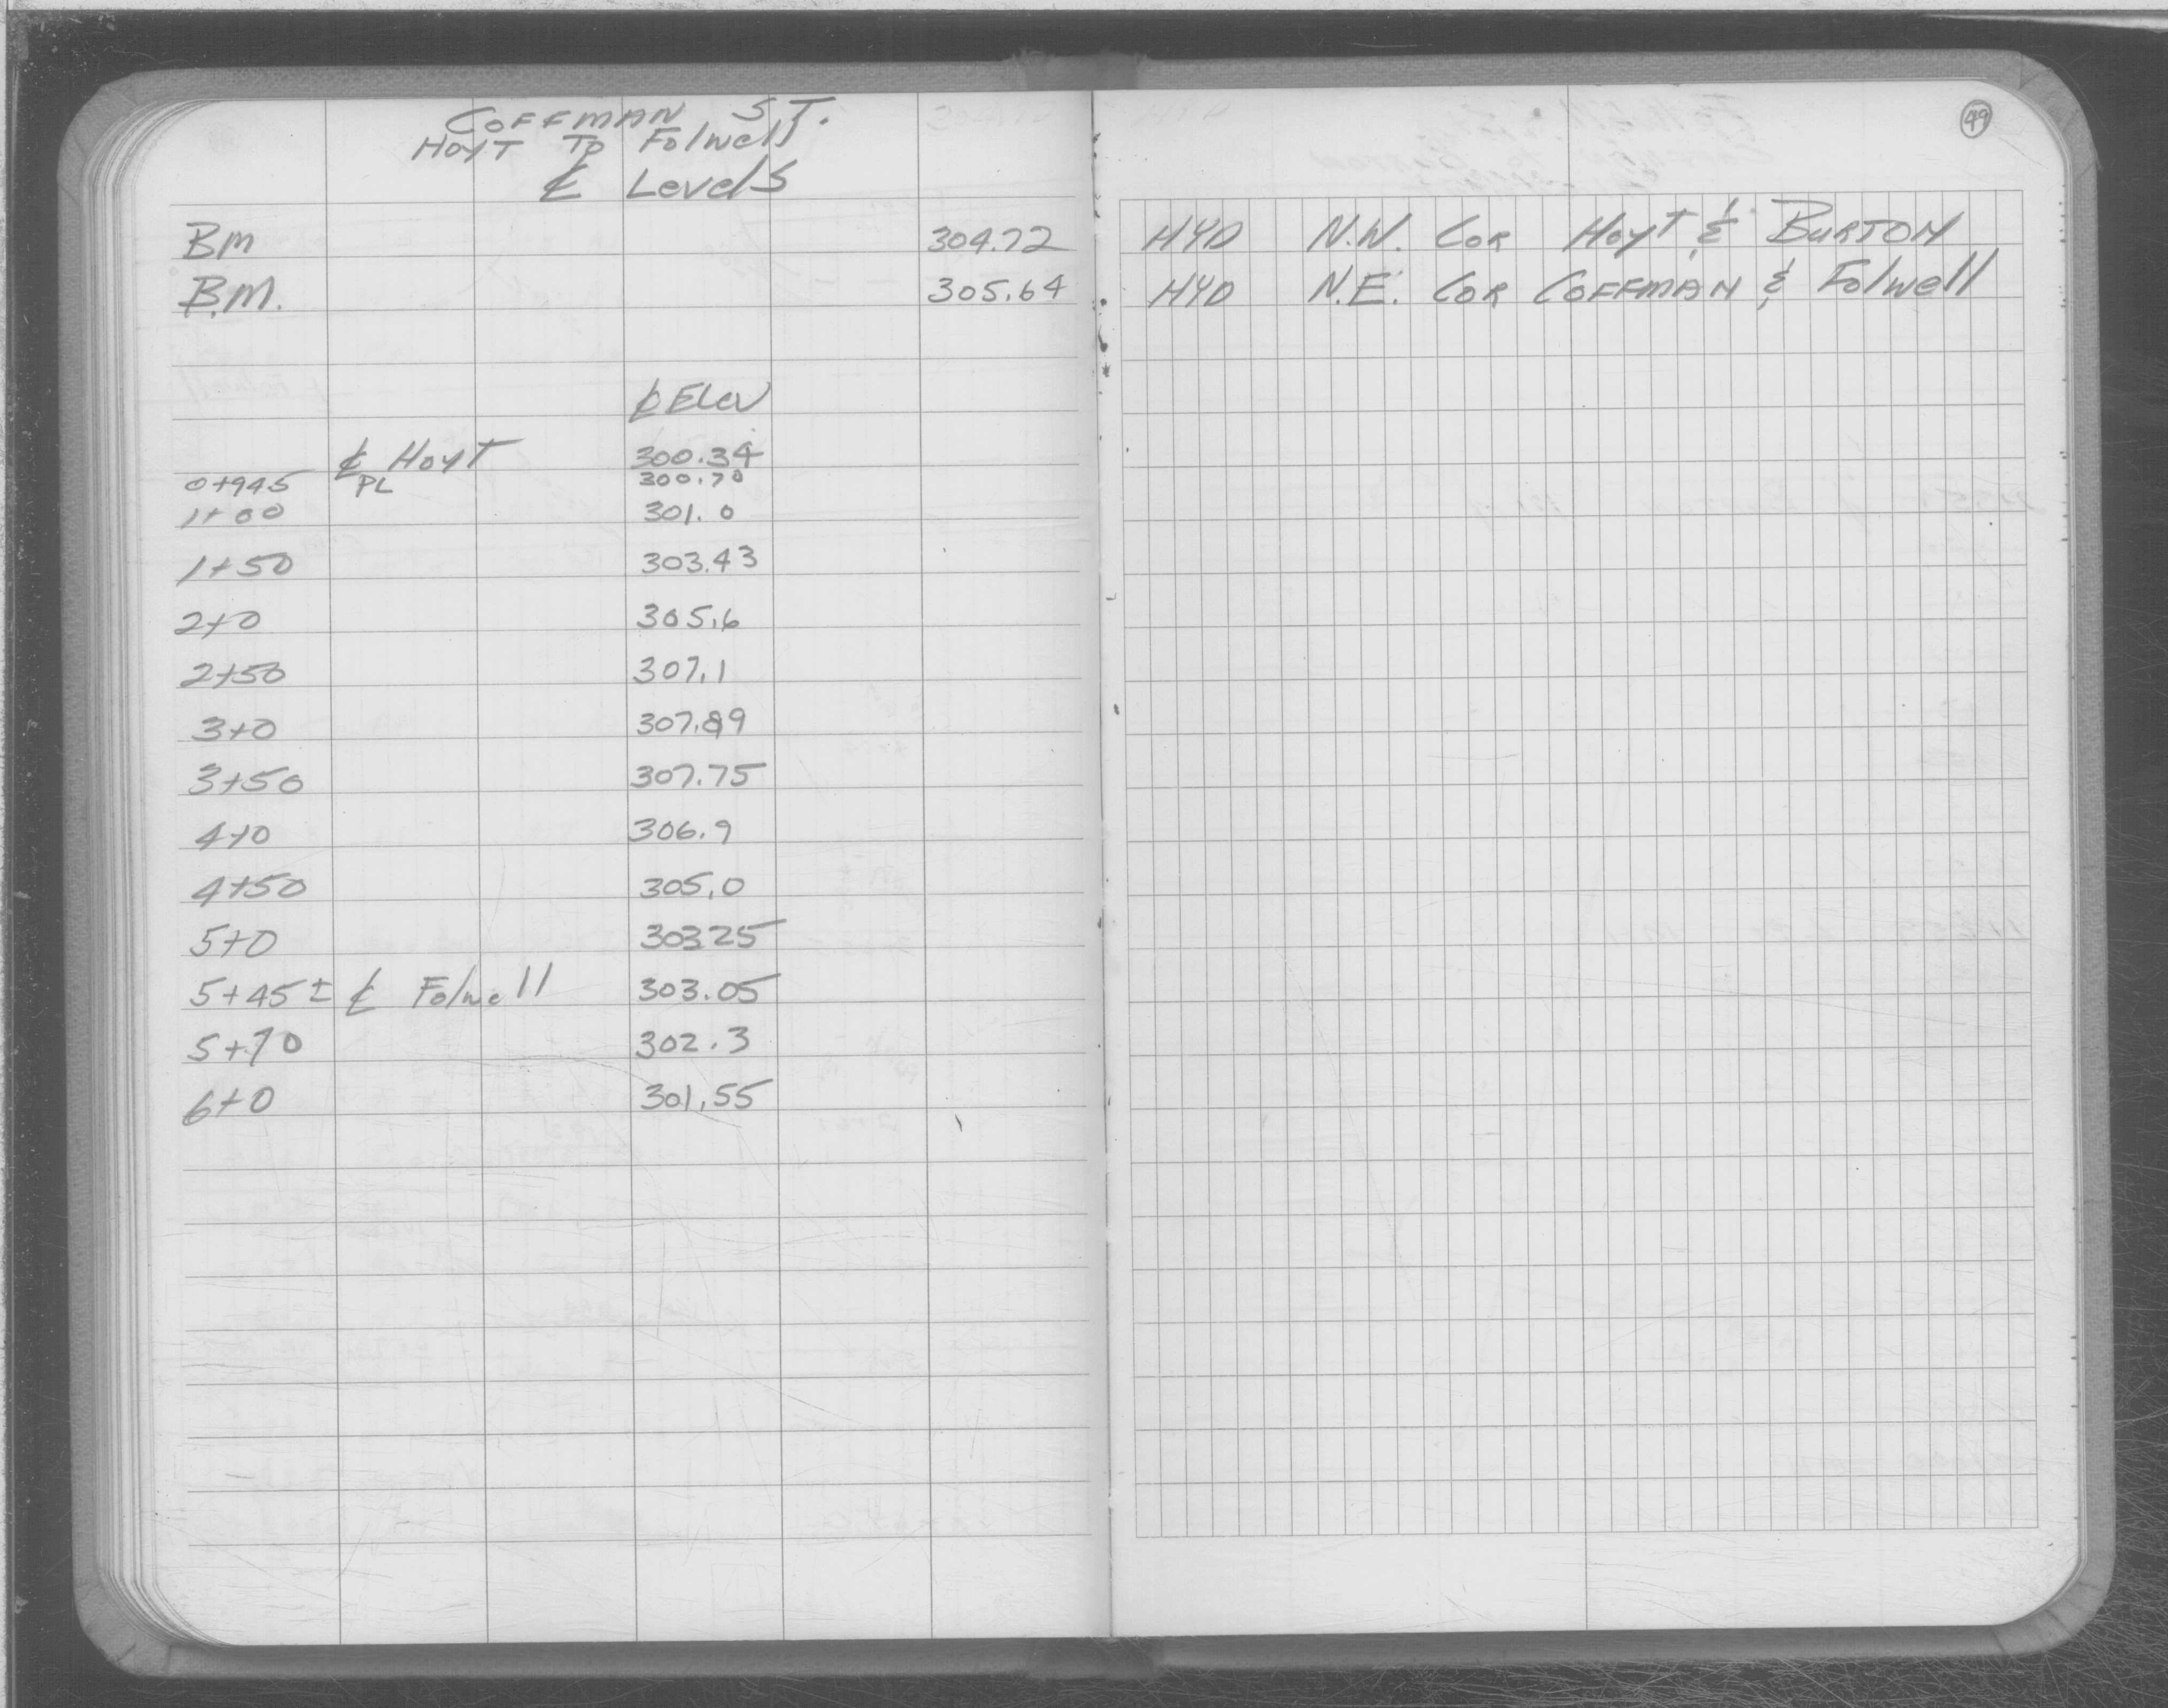 COFFMAN ST.
HOYT TO Folwell
℄ Levels
49
BM 304.72 HYD N.W. COR HOYT & BURTON
B.M. 305.64 HYD N.E. COR COFFMAN & Folwell
℄ Elev
℄ HOYT 300.34
0+945 PL 300.70
1+00 301.0
1+50 303.43
2+0 305.6
2+50 307.1
3+0 307.89
3+50 307.75
4+0 306.9
4+50 305.0
5+0 303.25
5+45± ℄ Folwell 303.05
5+70 302.3
6+0 301.55